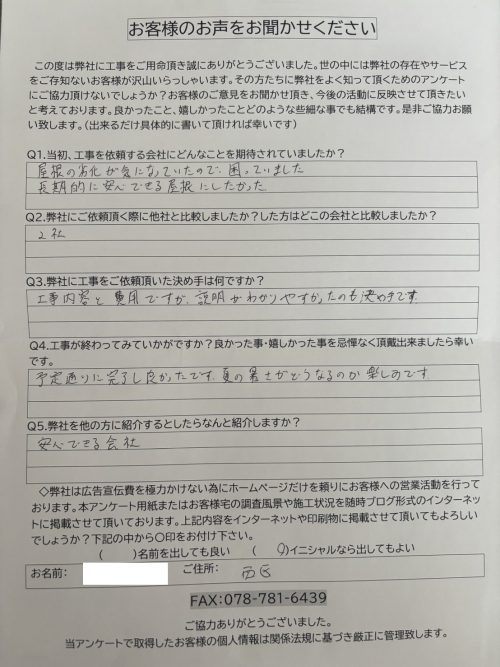 お客様のお声をお聞かせください
この度は弊社に工事をご用命頂き誠にありがとうございました。世の中には弊社の存在やサービス
をご存知ないお客様が沢山いらっしゃいます。その方たちに弊社をよく知って頂くためのアンケート
にご協力頂けないでしょうか？お客様のご意見をお聞かせ頂き、今後の活動に反映させて頂きたい
と考えております。良かったこと、嬉しかったことどのような些細な事でも結構です。是非ご協力お願
い致します。（出来るだけ具体的に書いて頂ければ幸いです）
Q1.当初、工事を依頼する会社にどんなことを期待されていましたか？
屋根の劣化が気になっていたので、困っていました
長期的に安心できる屋根にしたかった
Q2.弊社にご依頼頂く際に他社と比較しましたか？した方はどこの会社と比較しましたか？
2社
Q3.弊社に工事をご依頼頂いた決め手は何ですか？
工事内容と費用ですが、説明がわかりやすかったのも決め手です.
Q4.工事が終わってみていかがですか？良かった事・嬉しかった事を忌憚なく頂戴出来ましたら幸い
です。
予定通りに完了し良かったです.夏の暑さがどうなるのか楽しみです.
Q5.弊社を他の方に紹介するとしたらなんと紹介しますか？
安心できる会社
◇弊社は広告宣伝費を極力かけない為にホームページだけを頼りにお客様への営業活動を行って
おります。本アンケート用紙またはお客様宅の調査風景や施工状況を随時ブログ形式のインターネッ
トに掲載させて頂いております。上記内容をインターネットや印刷物に掲載させて頂いてもよろしい
でしょうか？下記の中から〇印をお付け下さい。
（　　）名前を出しても良い　（　○）イニシャルなら出してもよい
お名前：　ご住所：　西区
FAX：078-781-6439
ご協力ありがとうございました。
当アンケートで取得したお客様の個人情報は関係法規に基づき厳正に管理致します。